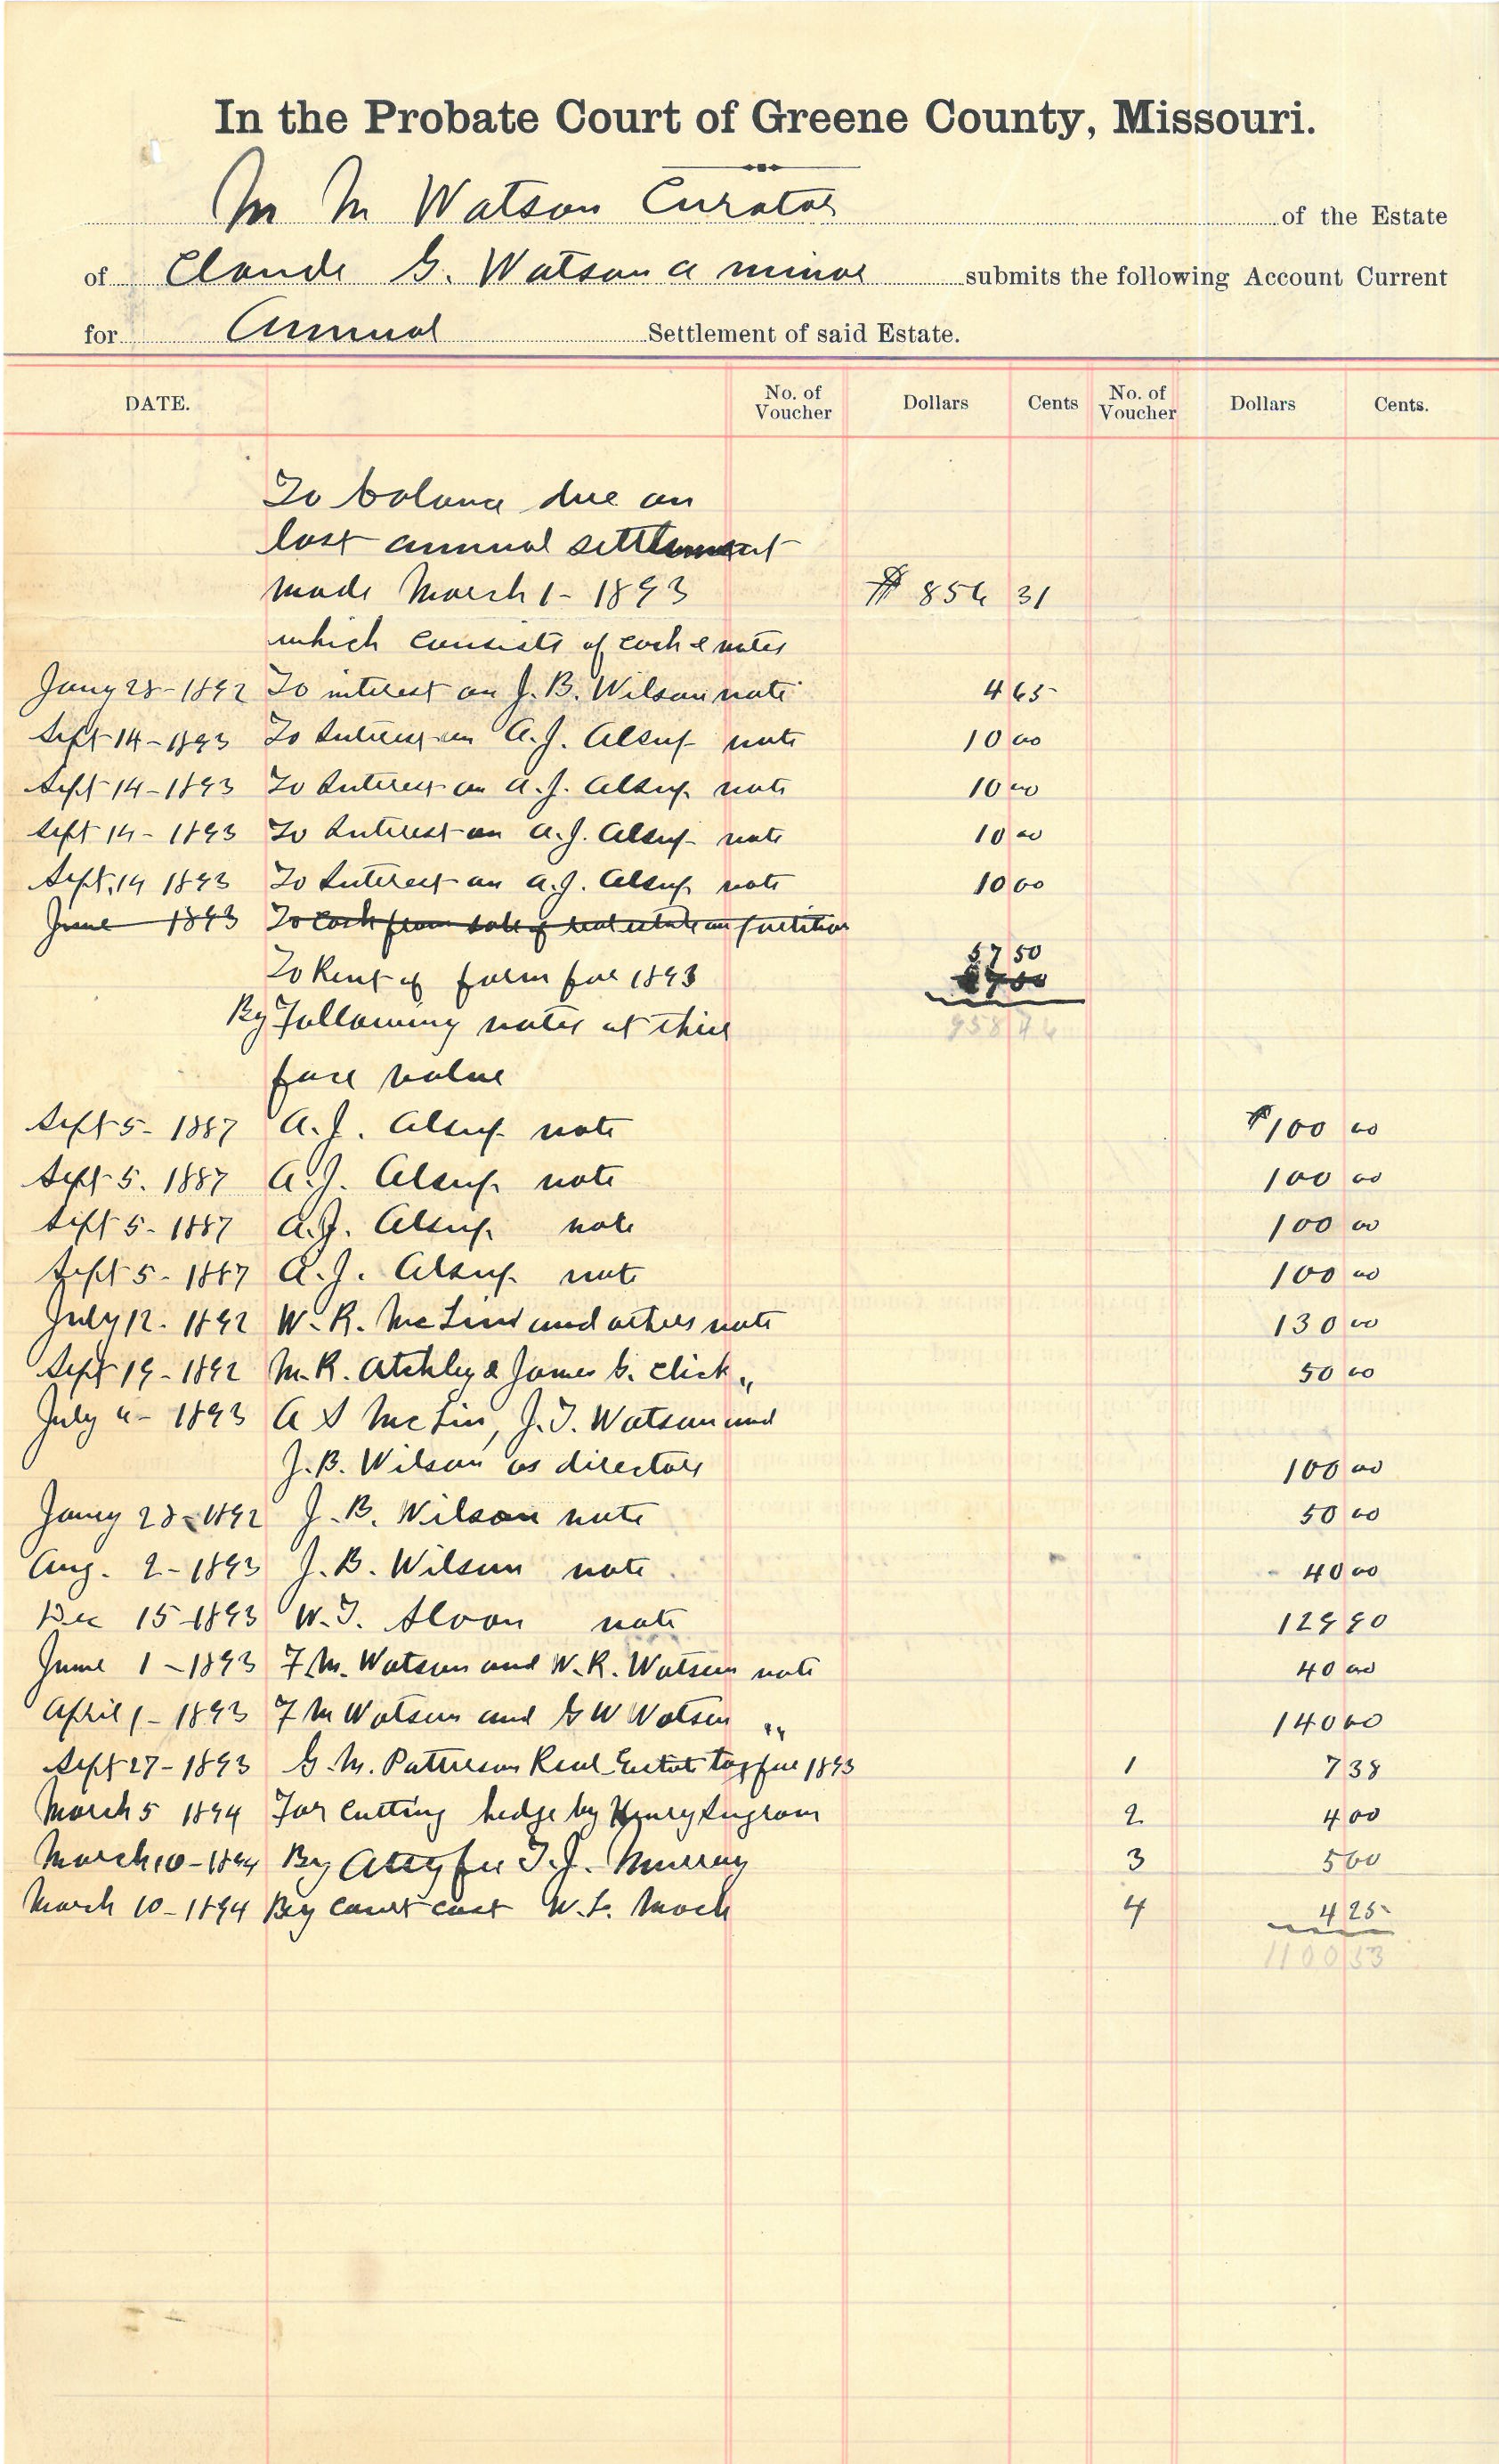 In the Probate Court of Greene County, Missouri.
M M Watson Curator of the Estate
of Claude G. Watson a minor submits the following Account Current
for Annual Settlement of said Estate.
DATE. No. of Voucher Dollars Cents No. of Voucher Dollars Cents.
To balance due on
last annual settlement
made March 1 - 1893 $ 854 31
which consists of cash & notes
Jany 28 - 1892 To interest on J. B. Wilson note 4 65
Sept 14 - 1893 To Interest on A. J. Alsup note 10 00
Sept 14 - 1893 To Interest on A. J. Alsup note 10 00
Sept 14 - 1893 To Interest on A. J. Alsup note 10 00
Sept. 14 1893 To Interest on A. J. Alsup note 10 00
June 1893 To Cash from sale of real estate in partition
57 50
To Rent of farm for 1893
By Following notes at thier 958 46
face value
Sept 5 - 1887 A. J. Alsup note $100 00
Sept 5. 1887 A. J. Alsup note 100 00
Sept 5 - 1887 A. J. Alsup note 100 00
Sept 5 - 1887 A. J. Alsup note 100 00
July 12 - 1892 W. R. McLin and others note 130 00
Sept 19 - 1892 M. R. Atchley & James G. Click " 50 00
July 4 - 1893 A S McLin, J. T. Watson and
J. B. Wilson as directors 100 00
Jany 28 - 1892 J. B. Wilson note 50 00
Aug. 2 - 1893 J. B. Wilson note 40 00
Dec 15 - 1893 W. T. Sloan note 129 90
June 1 - 1893 F. M. Watson and W. R. Watson note 40 00
April 1 - 1893 F M Watson and G W Watson " 140 00
Sept 27 - 1893 G. M. Patterson Real Estate tax for 1893 1 7 38
March 5 1894 For cutting hedge by Henry Ingram 2 4 00
March 10 - 1894 By Atty fee T. J. Murray 3 5 00
March 10 - 1894 By Court cost W. L. Mack 4 4 25
1100 53